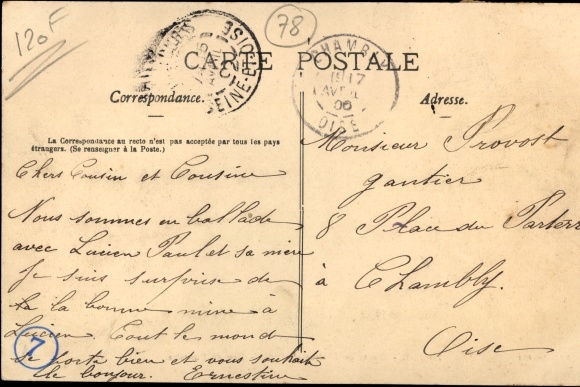 120F
78
CARTE POSTALE
CHAMBLY
17
AVRIL
06
OISE
SEINE-ET-OISE
Correspondance.
Adresse.
La Correspondance au recto n'est pas acceptée par tous les pays
étrangers. (Se renseigner à la Poste.)
Chers Cousin et Cousine
Nous sommes en ballade
avec Lucien Paul et sa mère
Je suis surprise de
la bonne mine à
Lucien. Tout le monde
se porte bien et vous souhaite
le bonjour. Ernestine
7
Monsieur Provost
gantier
8 Place du Parterre
à Chambly.
Oise